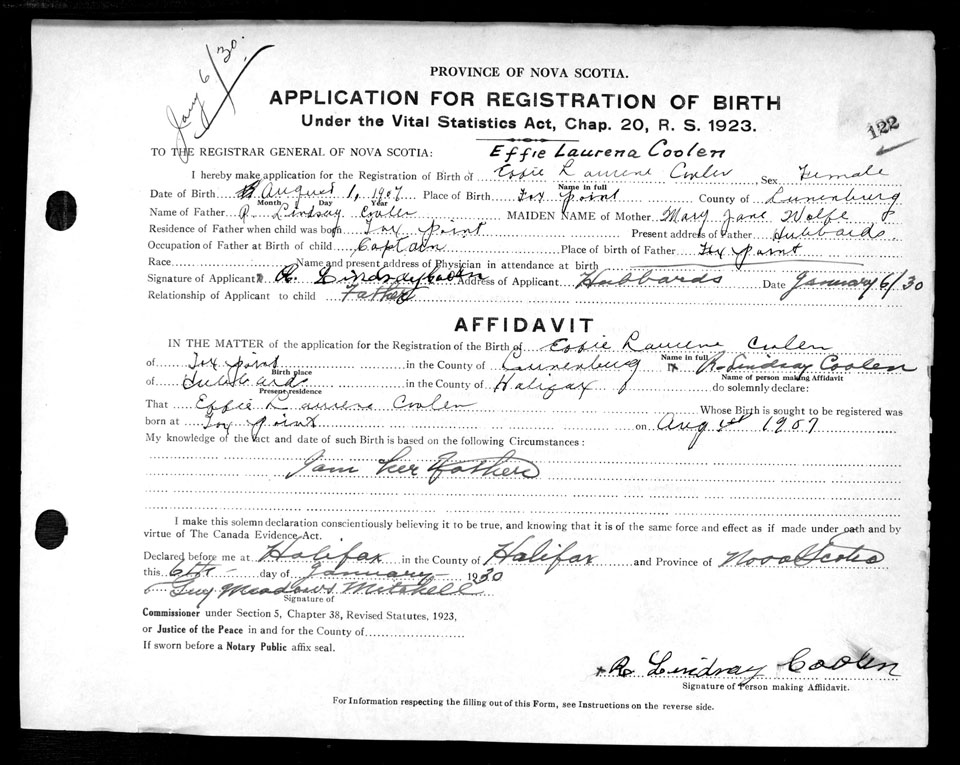 Jany 6/30.
PROVINCE OF NOVA SCOTIA.
APPLICATION FOR REGISTRATION OF BIRTH
Under the Vital Statistics Act, Chap. 20, R. S. 1923.
122
TO THE REGISTRAR GENERAL OF NOVA SCOTIA: Effie Laurena Coolen
I hereby make application for the Registration of Birth of Effie Laurene Coolen Sex Female
Name in full
Date of Birth August 1, 1907 Place of Birth Fox Point County of Lunenburg
Month Day Year
Name of Father R. Lindsay Coolen MAIDEN NAME of Mother Mary Jane Wolfe
Residence of Father when child was born Fox Point Present address of Father Hubbards
Occupation of Father at Birth of child Captain Place of birth of Father Fox Point
Race Name and present address of Physician in attendance at birth
Signature of Applicant R. Lindsay Coolen Address of Applicant Hubbards Date January 6/30
Relationship of Applicant to child Father
AFFIDAVIT
IN THE MATTER of the application for the Registration of the Birth of Effie Laurene Coolen
Name in full
of Fox Point in the County of Lunenburg I R. Lindsay Coolen
Birth place Name of person making Affidavit
of Hubbards in the County of Halifax do solemnly declare:
Present residence
That Effie Laurene Coolen Whose Birth is sought to be registered was
born at Fox Point on Aug 1st 1907
My knowledge of the fact and date of such Birth is based on the following Circumstances:
I am her Father
I make this solemn declaration conscientiously believing it to be true, and knowing that it is of the same force and effect as if made under oath and by
virtue of The Canada Evidence Act.
Declared before me at Halifax in the County of Halifax and Province of Nova Scotia
this 6th day of January 1930
Guy Meadows Mitchell
Signature of
Commissioner under Section 5, Chapter 38, Revised Statutes, 1923,
or Justice of the Peace in and for the County of
If sworn before a Notary Public affix seal.
R Lindsay Coolen
Signature of Person making Affidavit.
For Information respecting the filling out of this Form, see Instructions on the reverse side.